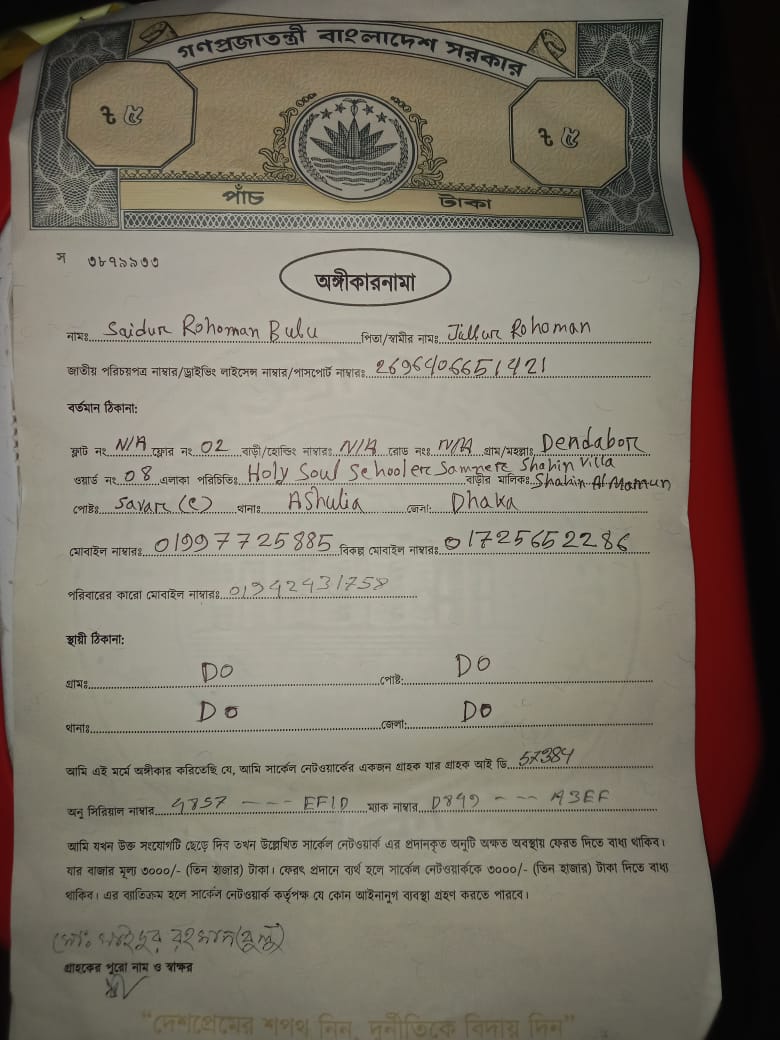 গণপ্রজাতন্ত্রী বাংলাদেশ সরকার
৳ ৫
৳ ৫
পাঁচ টাকা
স ৩৮৭৯৯৩৩
অঙ্গীকারনামা
নামঃ Saidur Rohoman Bulu পিতা/স্বামীর নামঃ Jillur Rohoman
জাতীয় পরিচয়পত্র নাম্বার/ড্রাইভিং লাইসেন্স নাম্বার/পাসপোর্ট নাম্বারঃ 2696406651421
বর্তমান ঠিকানা:
ফ্লাট নং N/A ফ্লোর নং 02 বাড়ী/হোল্ডিং নাম্বারঃ N/A রোড নংঃ N/A গ্রাম/মহল্লাঃ Dendabor
ওয়ার্ড নং 08 এলাকা পরিচিতিঃ Holy Soul Schooler Samner Shahin Villa
বাড়ীর মালিকঃ Shahin Al Mamun
পোষ্টঃ Savar (c) থানাঃ Ashulia জেলা: Dhaka
মোবাইল নাম্বারঃ 01997725885 বিকল্প মোবাইল নাম্বারঃ 01725652286
পরিবারের কারো মোবাইল নাম্বারঃ 01942431758
স্থায়ী ঠিকানা:
গ্রামঃ DO পোষ্ট: DO
থানাঃ DO জেলা: DO
আমি এই মর্মে অঙ্গীকার করিতেছি যে, আমি সার্কেল নেটওয়ার্কের একজন গ্রাহক যার গ্রাহক আই ডি 57384
অনু সিরিয়াল নাম্বার 4857 --- EF1D ম্যাক নাম্বার D849 --- A3EF
আমি যখন উক্ত সংযোগটি ছেড়ে দিব তখন উল্লেখিত সার্কেল নেটওয়ার্ক এর প্রদানকৃত অনুটি অক্ষত অবস্থায় ফেরত দিতে বাধ্য থাকিব।
যার বাজার মূল্য ৩০০০/- (তিন হাজার) টাকা। ফেরৎ প্রদানে ব্যর্থ হলে সার্কেল নেটওয়ার্ককে ৩০০০/- (তিন হাজার) টাকা দিতে বাধ্য
থাকিব। এর ব্যতিক্রম হলে সার্কেল নেটওয়ার্ক কর্তৃপক্ষ যে কোন আইনানুগ ব্যবস্থা গ্রহণ করতে পারবে।
মোঃ সাইদুর রহমান (বুলু)
গ্রাহকের পুরো নাম ও স্বাক্ষর
"দেশপ্রেমের শপথ নিন, দুর্নীতিকে বিদায় দিন"